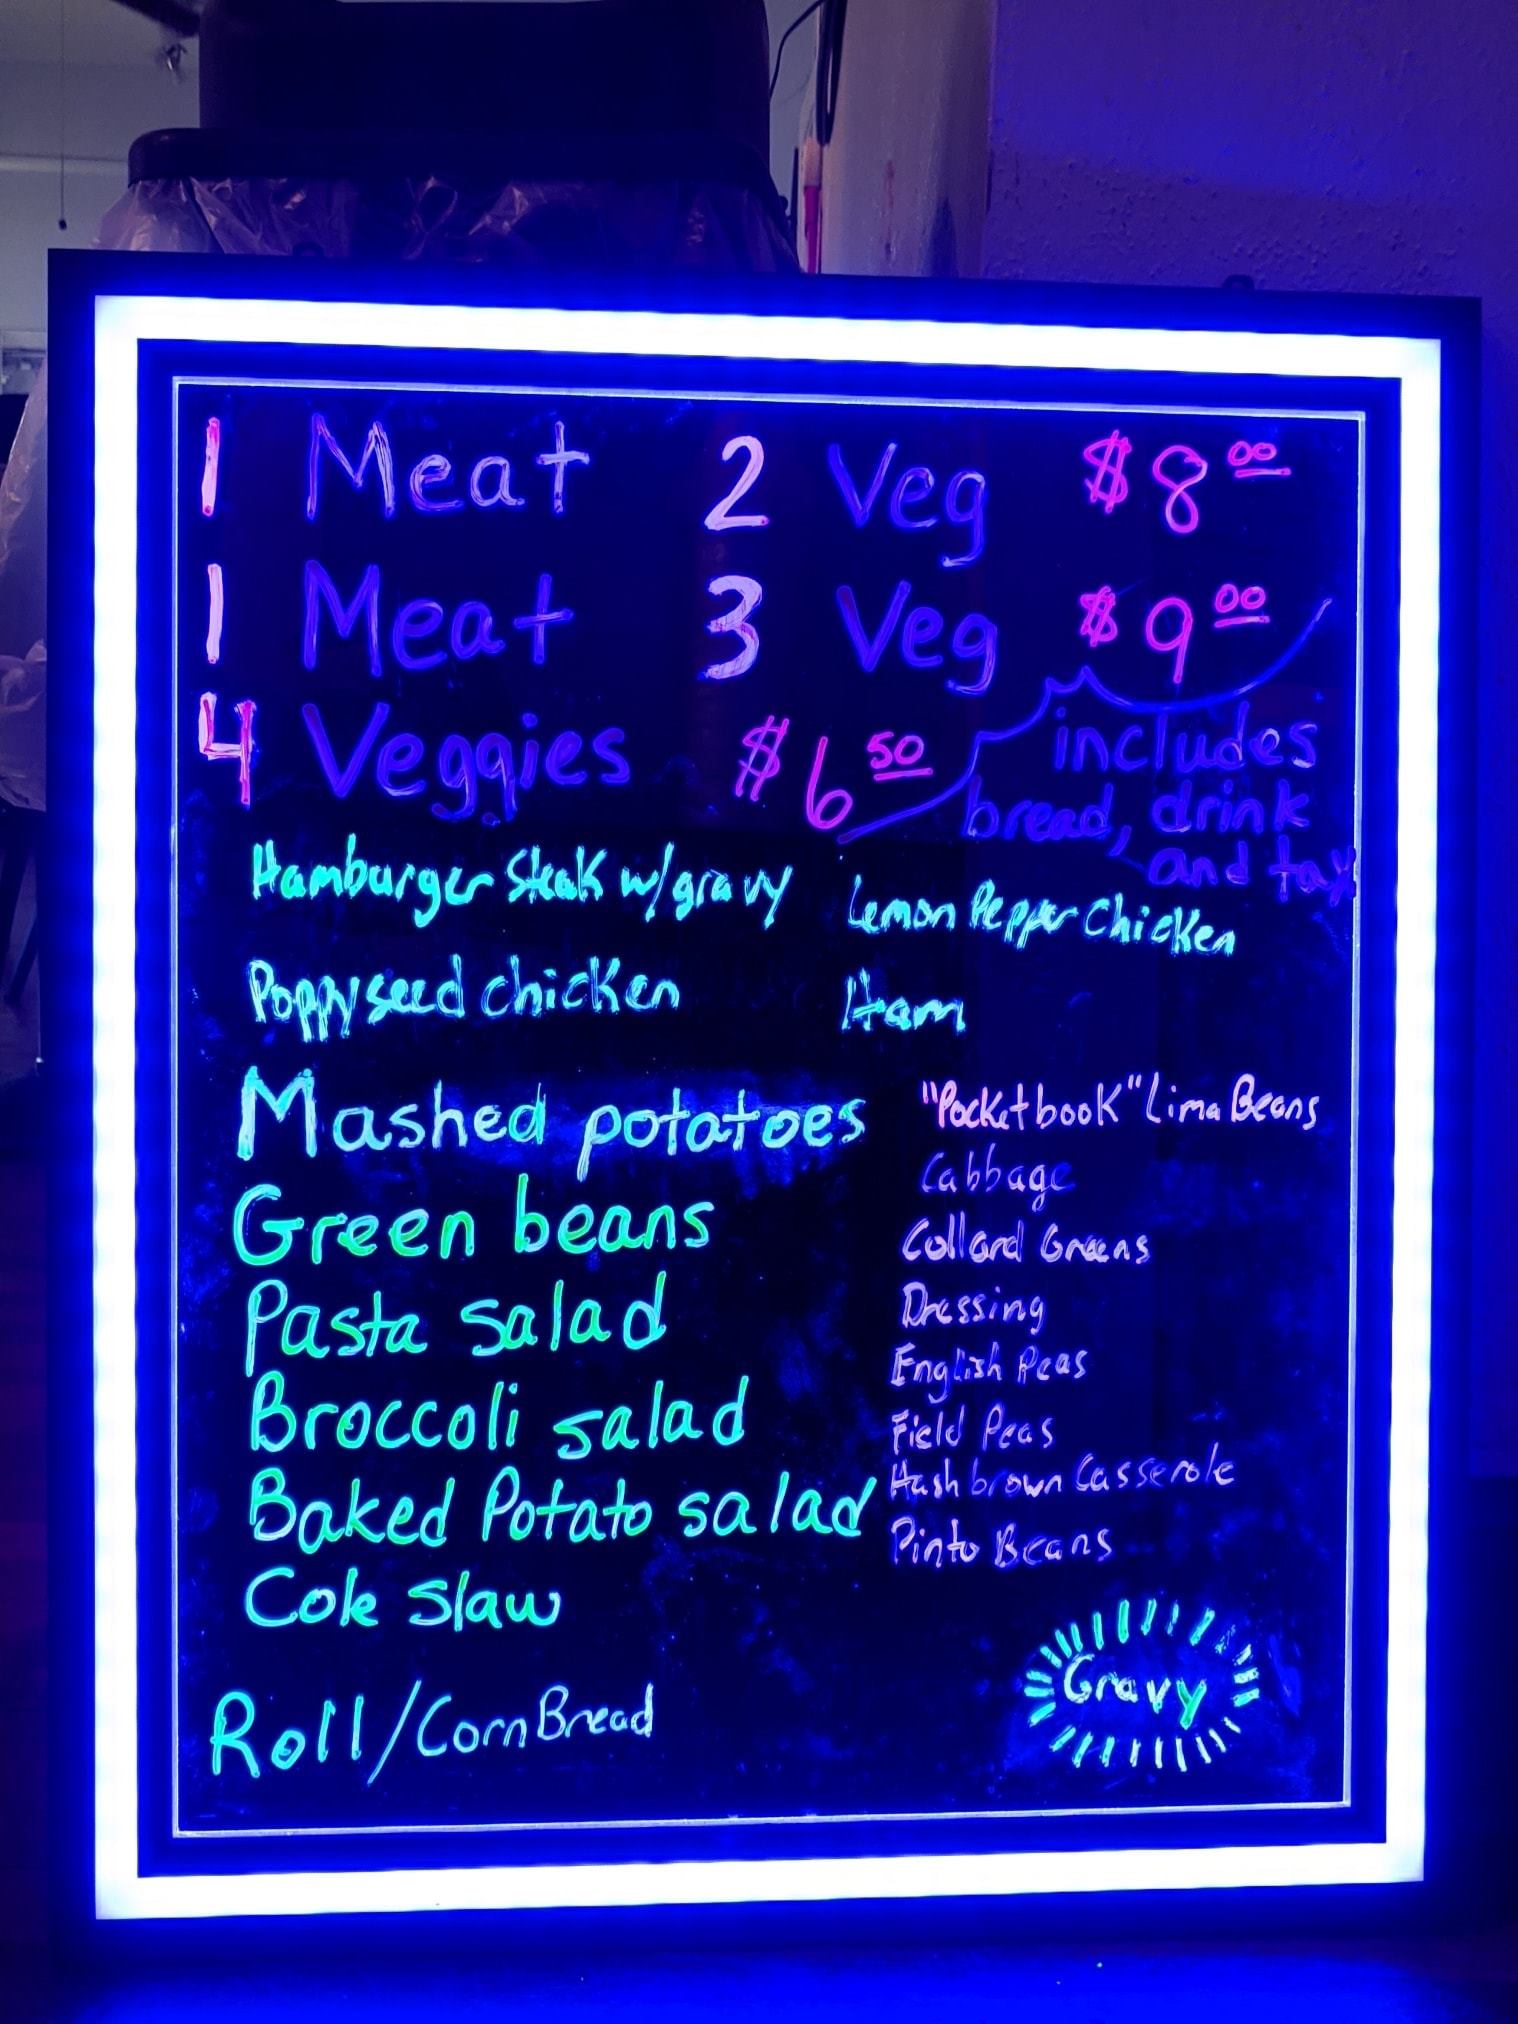 1 Meat 2 Veg $8.00
1 Meat 3 Veg $9.00
4 Veggies $6.50
includes
bread, drink
and tax
Hamburger Steak w/gravy
Lemon Pepper Chicken
Poppyseed chicken
Ham
Mashed potatoes
Green beans
Pasta salad
Broccoli salad
Baked Potato salad
Cole Slaw
"Pocketbook" Lima Beans
Cabbage
Collard Greens
Dressing
English Peas
Field Peas
Hashbrown Casserole
Pinto Beans
Roll/Corn Bread
Gravy